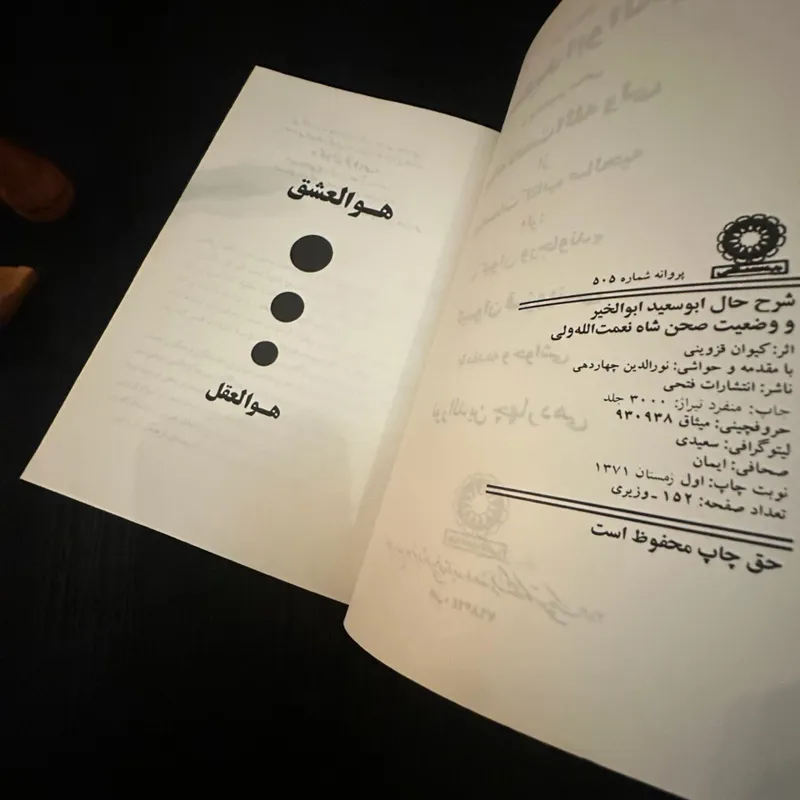 پروانه شماره ۵۰۵
شرح حال ابوسعید ابوالخیر
و وضعیت صحن شاه نعمت‌الله‌ولی
اثر: کیوان قزوینی
با مقدمه و حواشی: نورالدین چهاردهی
ناشر: انتشارات فتحی
چاپ: منفرد تیراژ: ۳۰۰۰ جلد
حروفچینی: میثاق ۹۳۰۹۳۸
لیتوگرافی: سعیدی
صحافی: ایمان
نوبت چاپ: اول زمستان ۱۳۷۱
تعداد صفحه: ۱۵۲ ـ وزیری
حق چاپ محفوظ است
هـوالعشق
هـوالعقل